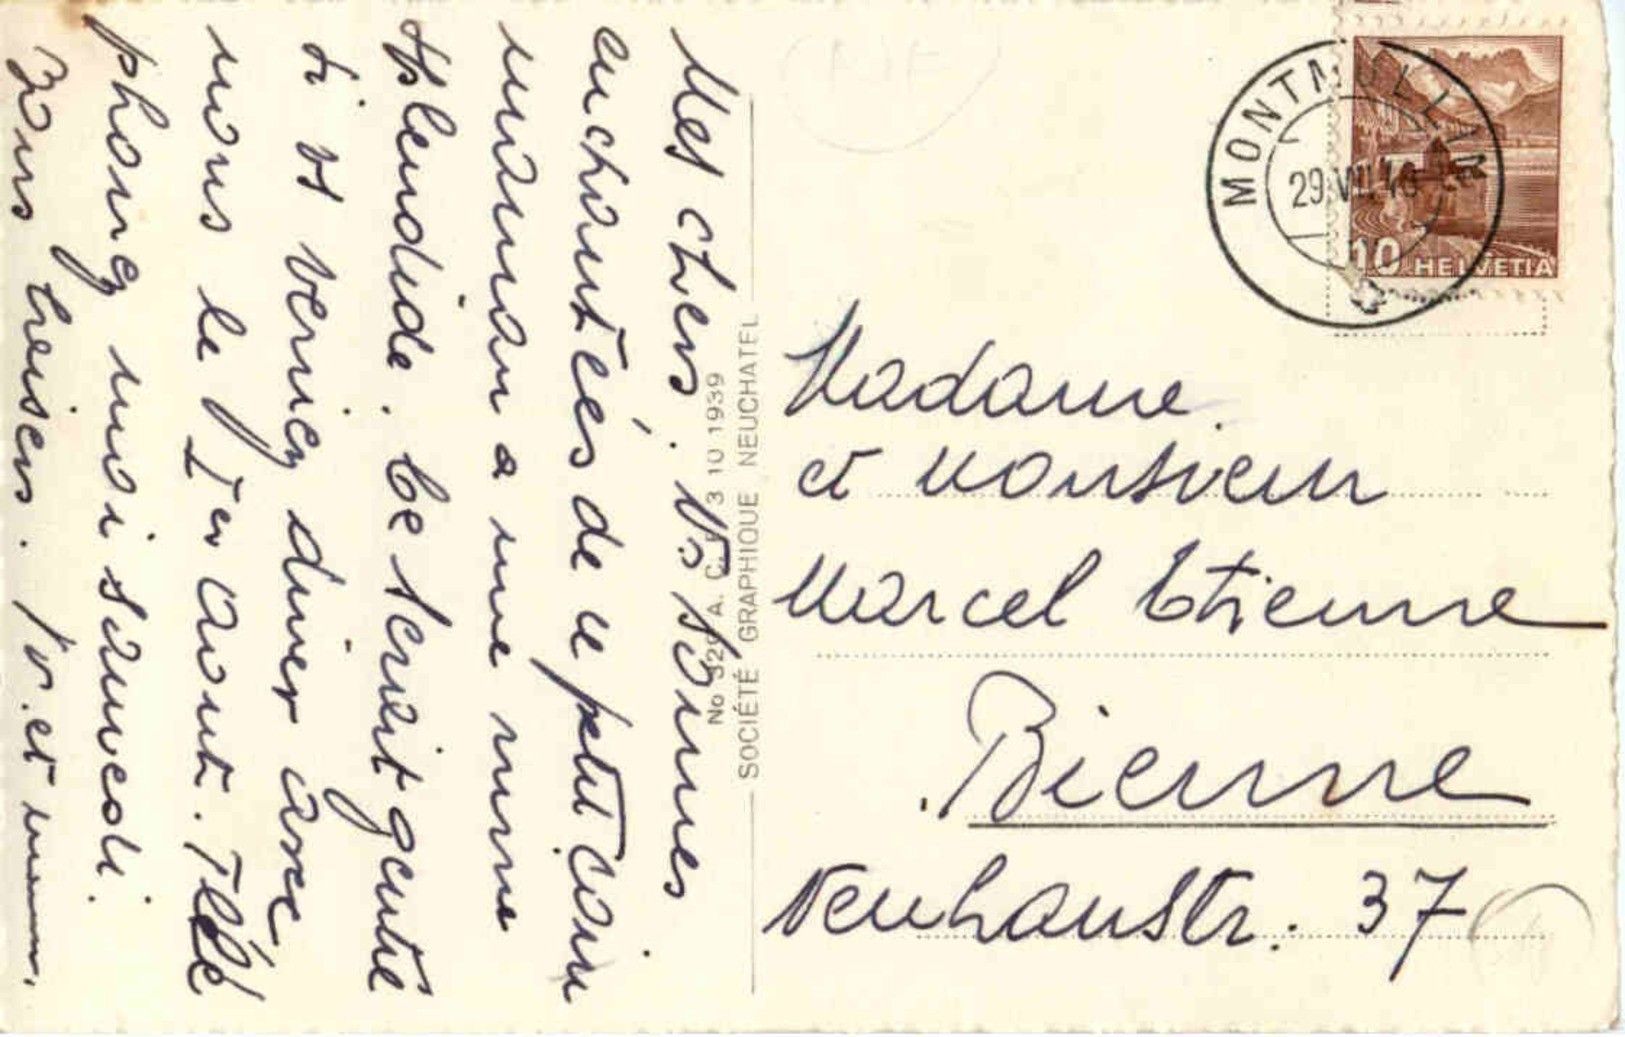 Mes chers. Ns sommes
enchantées de ce petit coin
maman a une mine
splendide. Ce serait gentil
si vs veniez diner avec
nous le 1er août. Télé
phonez moi samedi.
Bons baisers. V. et mam.
No 329 A. C. F. 3 10 1939
SOCIÉTÉ GRAPHIQUE NEUCHATEL
MONTMOLLIN
29.VII.40
10 HELVETIA
Madame
et Monsieur
Marcel Etienne
Bienne
Neuhausstr. 37